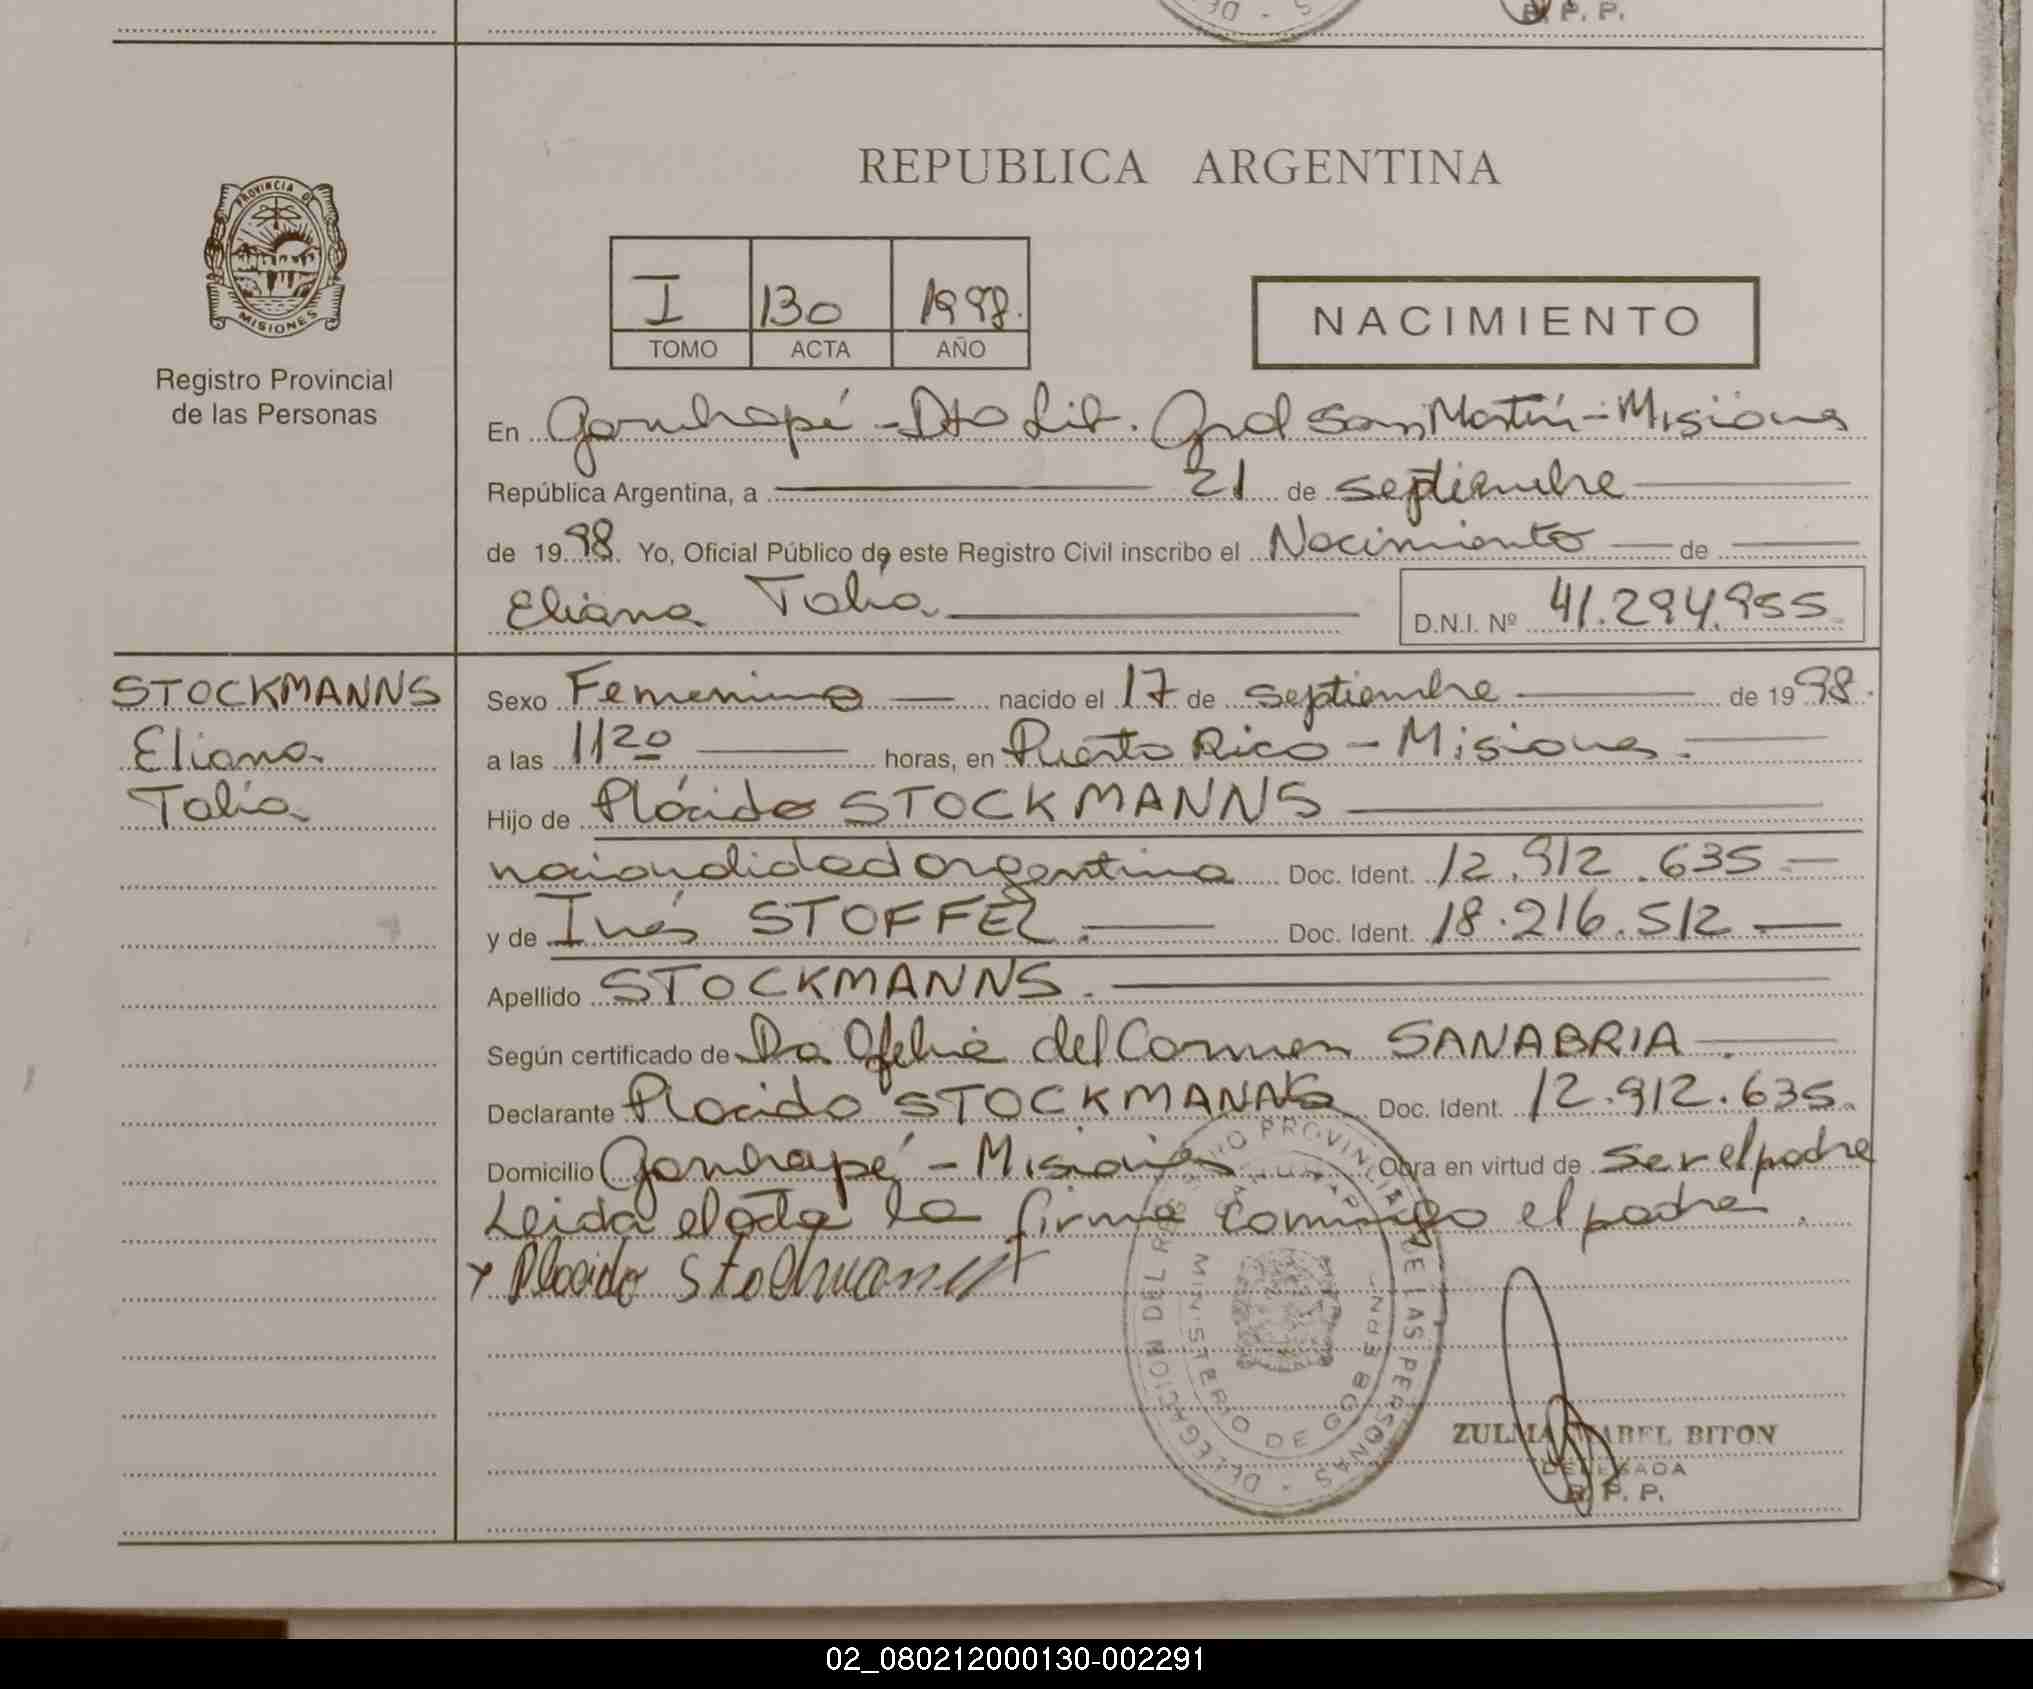 R. P. P.
REPUBLICA ARGENTINA
PROVINCIA DE
MISIONES
Registro Provincial
de las Personas
I 130 1998.
TOMO ACTA AÑO
NACIMIENTO
En Garuhapé - Dto Lib. Gral San Martín - Misiones
República Argentina, a 21 de septiembre
de 1998. Yo, Oficial Público de este Registro Civil inscribo el Nacimiento de
Eliana Talía D.N.I. Nº 41.294.955.
STOCKMANNS
Eliana
Talía
Sexo Femenino nacido el 17 de septiembre de 1998.
a las 11 20 horas, en Puerto Rico - Misiones.
Hijo de Plácido STOCKMANNS
nacionalidad argentina Doc. Ident. 12.912.635
y de Inés STOFFEL. Doc. Ident. 18.216.512
Apellido STOCKMANNS.
Según certificado de Dra Ofelia del Carmen SANABRIA.
Declarante Placido STOCKMANNS Doc. Ident. 12.912.635.
Domicilio Garuhapé - Misiones Obra en virtud de ser el padre
Leida el acta la firma conmigo el padre.
x Placido Stockmanns
DELEGACION DEL REGISTRO PROVINCIAL DE LAS PERSONAS
MINISTERIO DE GOB
ZULMA BITON
DELEGADA
R. P. P.
02_080212000130-002291